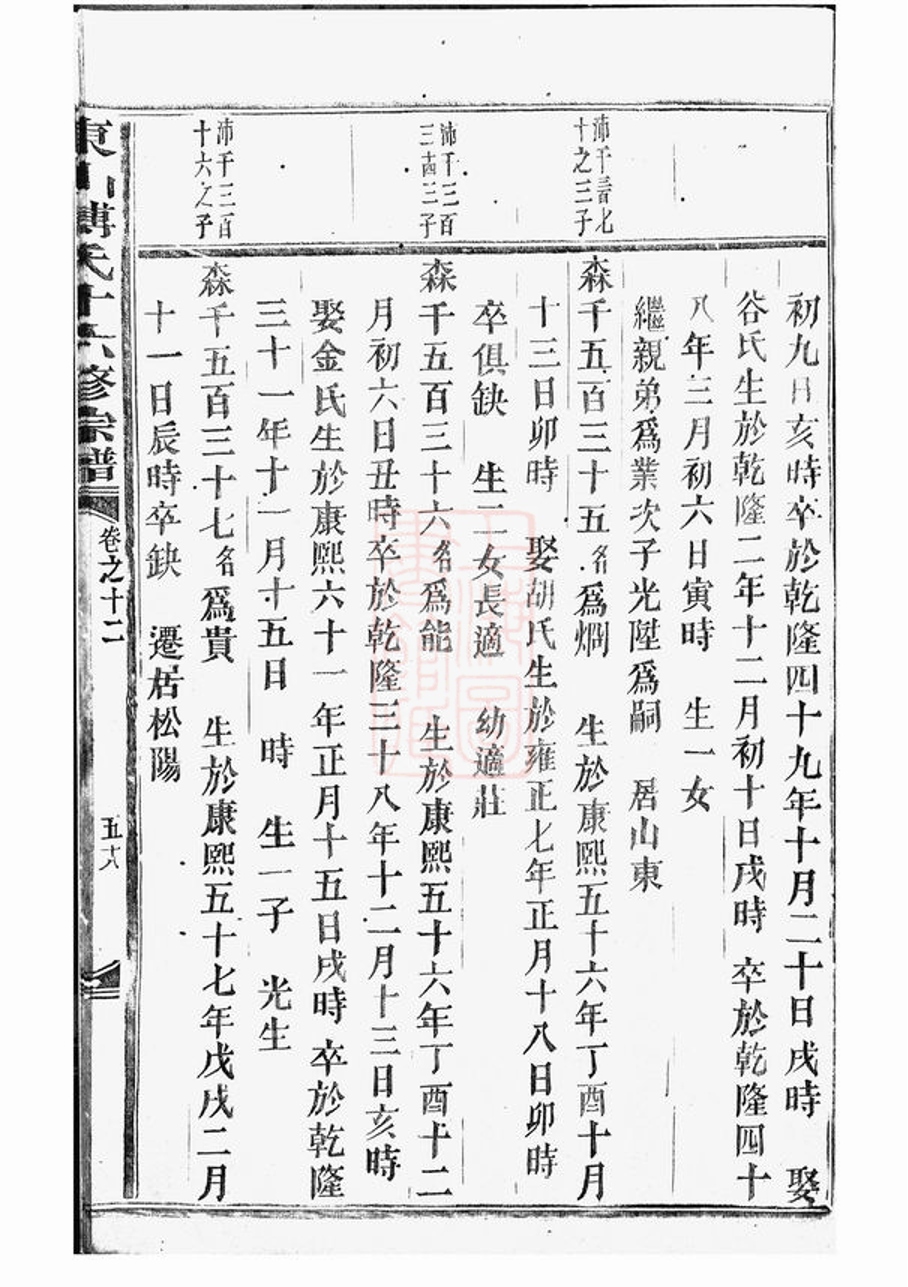 初九日亥時卒於乾隆四十九年十月二十日戌時 娶
谷氏生於乾隆二年十二月初十日戌時 卒於乾隆四十
八年三月初六日寅時 生一女
繼親弟爲業次子光陞爲嗣 居山東
沛千三百七
十之三子
森千五百三十五名爲烱 生於康熙五十六年丁酉十月
十三日卯時 娶胡氏生於雍正七年正月十八日卯時
卒俱缺 生二女長適 幼適莊
沛千三百
三十四三子
森千五百三十六名爲能 生於康熙五十六年丁酉十二
月初六日丑時卒於乾隆三十八年十二月十三日亥時
娶金氏生於康熙六十一年正月十五日戌時卒於乾隆
三十一年十一月十五日 時 生一子 光生
沛千三百
十六之子
森千五百三十七名爲貴 生於康熙五十七年戊戌二月
十一日辰時卒缺 遷居松陽
東山傅氏十六修宗譜 卷之十二 五十八